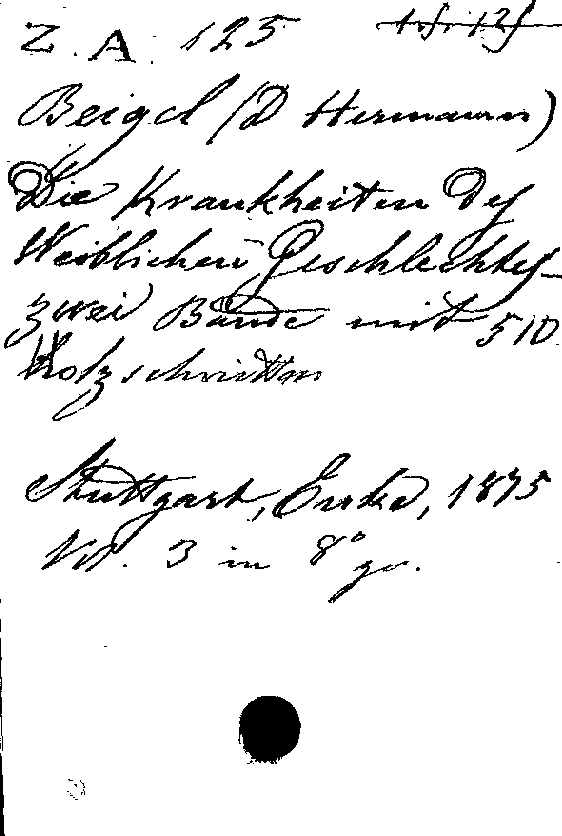 Z. A. 125
Beigel (D Hermann)
Die Krankheiten des
Weiblichen Geschlechtes
zwei Bände mit 510
Holzschnitten
Stuttgart, Enke, 1875
Vol. 3 in 8° gr.